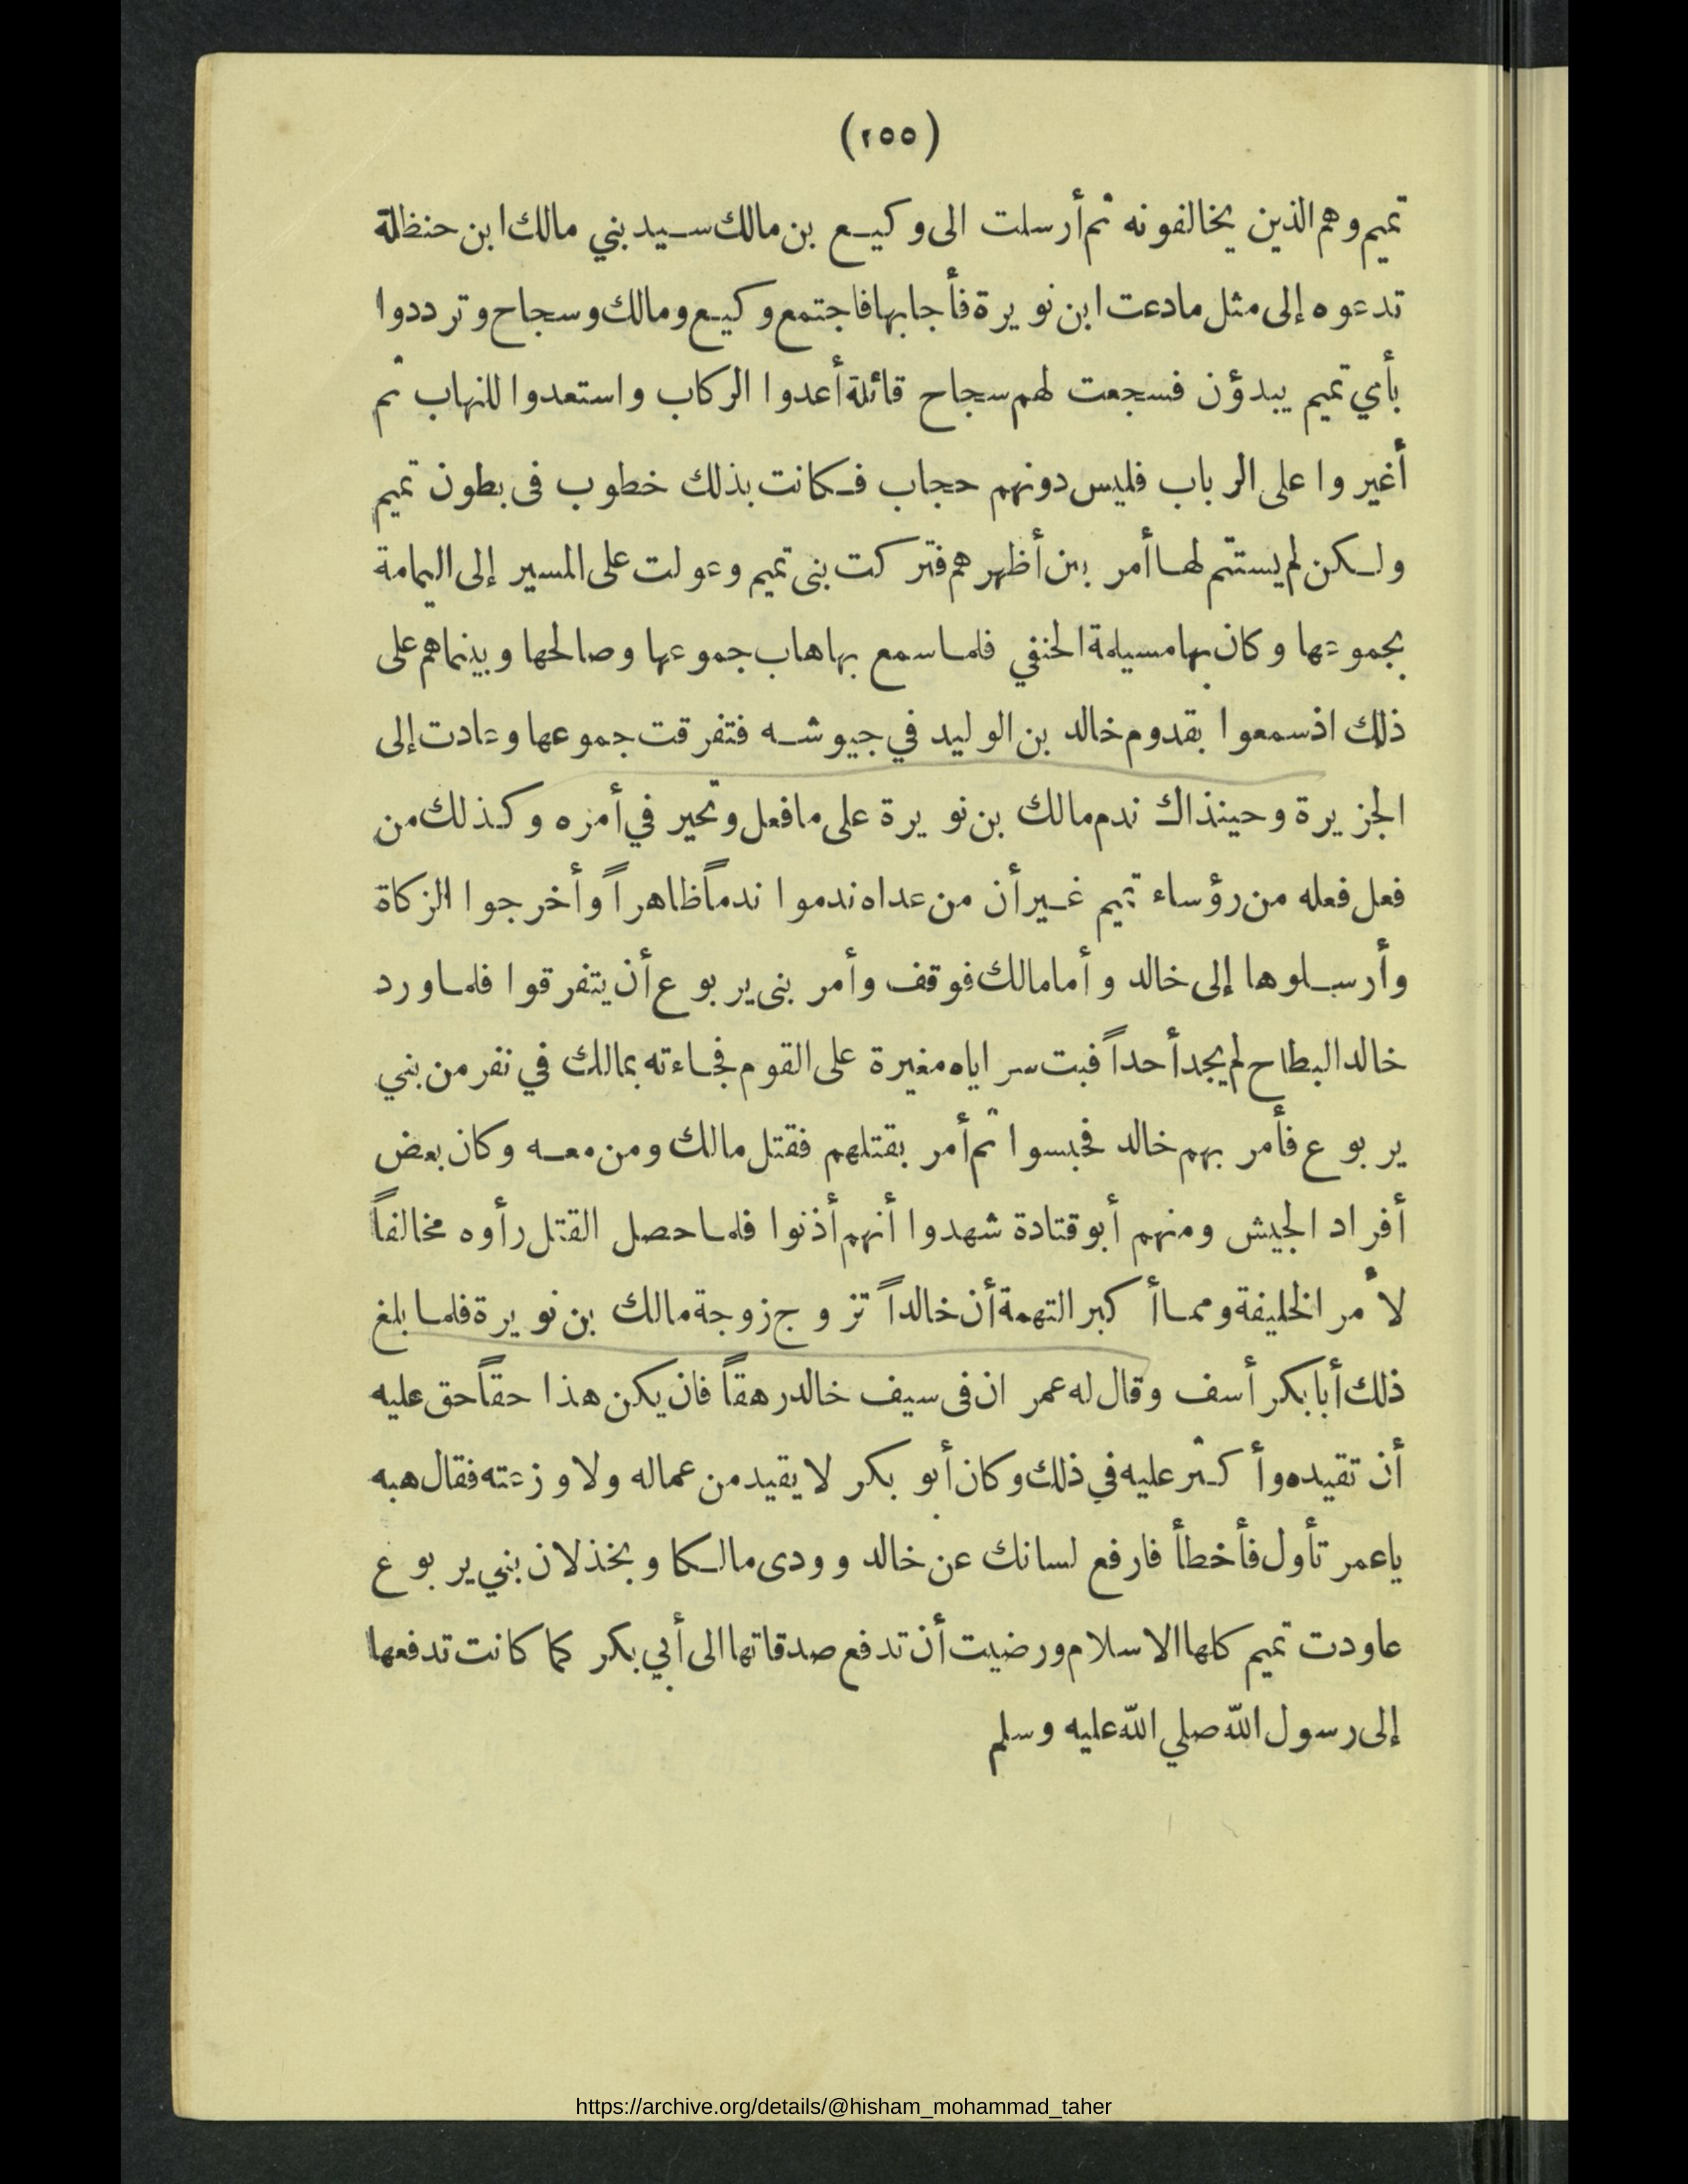 (٢٥٥)
تميم وهم الذين يخالفونه ثم أرسلت الى وكيع بن مالك سيد بني مالك ابن حنظلة
تدعوه إلى مثل مادعت ابن نويرة فأجابها فاجتمع وكيع ومالك وسجاح وترددوا
بأي تميم يبدؤن فسجعت لهم سجاح قائلة أعدوا الركاب واستعدوا للنهاب ثم
أغيروا على الرباب فليس دونهم حجاب فكانت بذلك خطوب فى بطون تميم
ولكن لم يستتم لها أمر بين أظهرهم فتركت بنى تميم وعولت على المسير إلى اليمامة
بجموعها وكان بها مسيلمة الحنفي فلما سمع بها هاب جموعها وصالحها وبينماهم على
ذلك اذسمعوا بقدوم خالد بن الوليد في جيوشه فتفرقت جموعها وعادت إلى
الجزيرة وحينذاك ندم مالك بن نويرة على مافعل وتحير في أمره وكذلك من
فعل فعله من رؤساء تميم غير أن من عداه ندموا ندماً ظاهراً وأخرجوا الزكاة
وأرسلوها إلى خالد وأما مالك فوقف وأمر بنى يربوع أن يتفرقوا فلما ورد
خالد البطاح لم يجد أحداً فبث سراياه مغيرة على القوم فجاءته بمالك في نفر من بني
يربوع فأمر بهم خالد فحبسوا ثم أمر بقتلهم فقتل مالك ومن معه وكان بعض
أفراد الجيش ومنهم أبو قتادة شهدوا أنهم أذنوا فلما حصل القتل رأوه مخالفاً
لأمر الخليفة ومما أكبر التهمة أن خالداً تزوج زوجة مالك بن نويرة فلما بلغ
ذلك أبابكر أسف وقال له عمر ان فى سيف خالد رهقاً فان يكن هذا حقاً حق عليه
أن تقيده وأكثر عليه في ذلك وكان أبو بكر لا يقيد من عماله ولا وزعته فقال هبه
ياعمر تأول فأخطأ فارفع لسانك عن خالد وودى مالكا وبخذلان بني يربوع
عاودت تميم كلها الاسلام ورضيت أن تدفع صدقاتها الى أبي بكر كما كانت تدفعها
إلى رسول الله صلي الله عليه وسلم
https://archive.org/details/@hisham_mohammad_taher